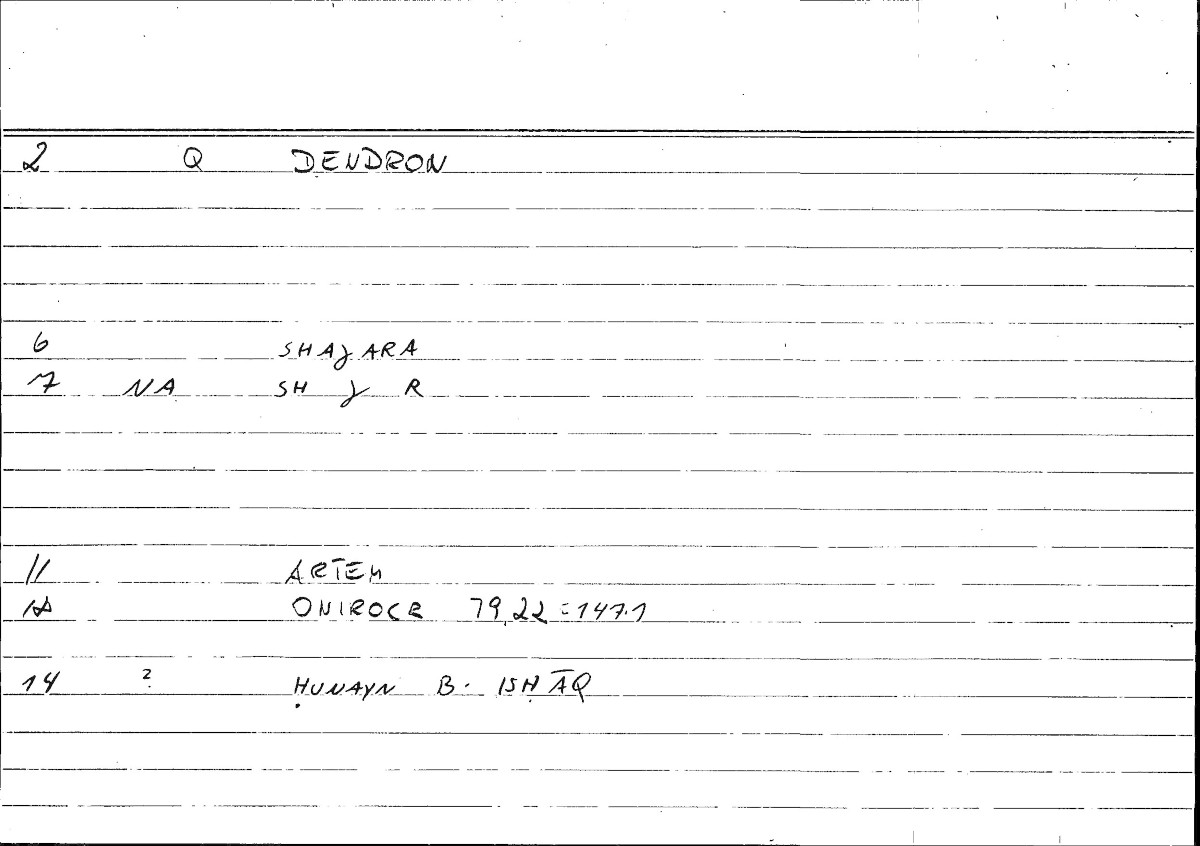 2 Q DENDRON
6 SHAJARA
7 NA SH J R
11 ARTEM
12 ONIROCR 79,22=147.1
14 ? ḤUNAYN B. ISḤĀQ